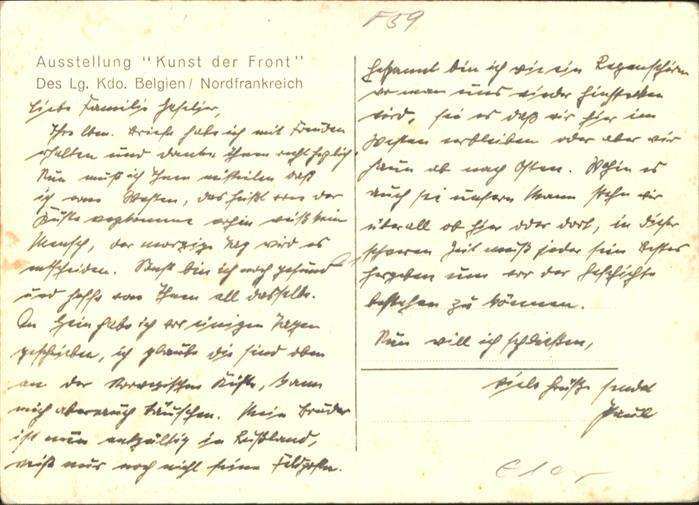 F59
Ausstellung "Kunst der Front"
Des Lg. Kdo. Belgien/ Nordfrankreich
Liebe Familie
Ihre lben. Briefe habe ich mit Freuden
erhalten und danke ihnen recht herzlich.
Nun muß ich Ihnen mitteilen daß
ich vom Westen, das heißt von der
Küste wegkomme wohin weiß kein
Mensch, der morgige Tag wird es
entscheiden. Sonst bin ich noch gesund
und hoffe von Ihnen all dasselbe.
An Hein habe ich vor einigen Tagen
geschrieben, ich glaube die sind oben
an der Norwegischen Küste, kann
mich aber auch täuschen. Mein Bruder
ist nun entgültig in Rußland,
weiß nur noch nicht seine Feldpostn.
Gespannt bin ich wie ein Regenschirm
wo man uns wieder hinstecken
wird, sei es daß wir hier im
Westen verbleiben oder aber wir
haun ab nach Osten. Wohin es
auch sei unsern Mann stehn wir
überall ob hier oder dort, in dieser
schweren Zeit muß jeder sein Bestes
hergeben um vor der Geschichte
bestehen zu können.
Nun will ich schließen,
viele Grüße sendet
Paul